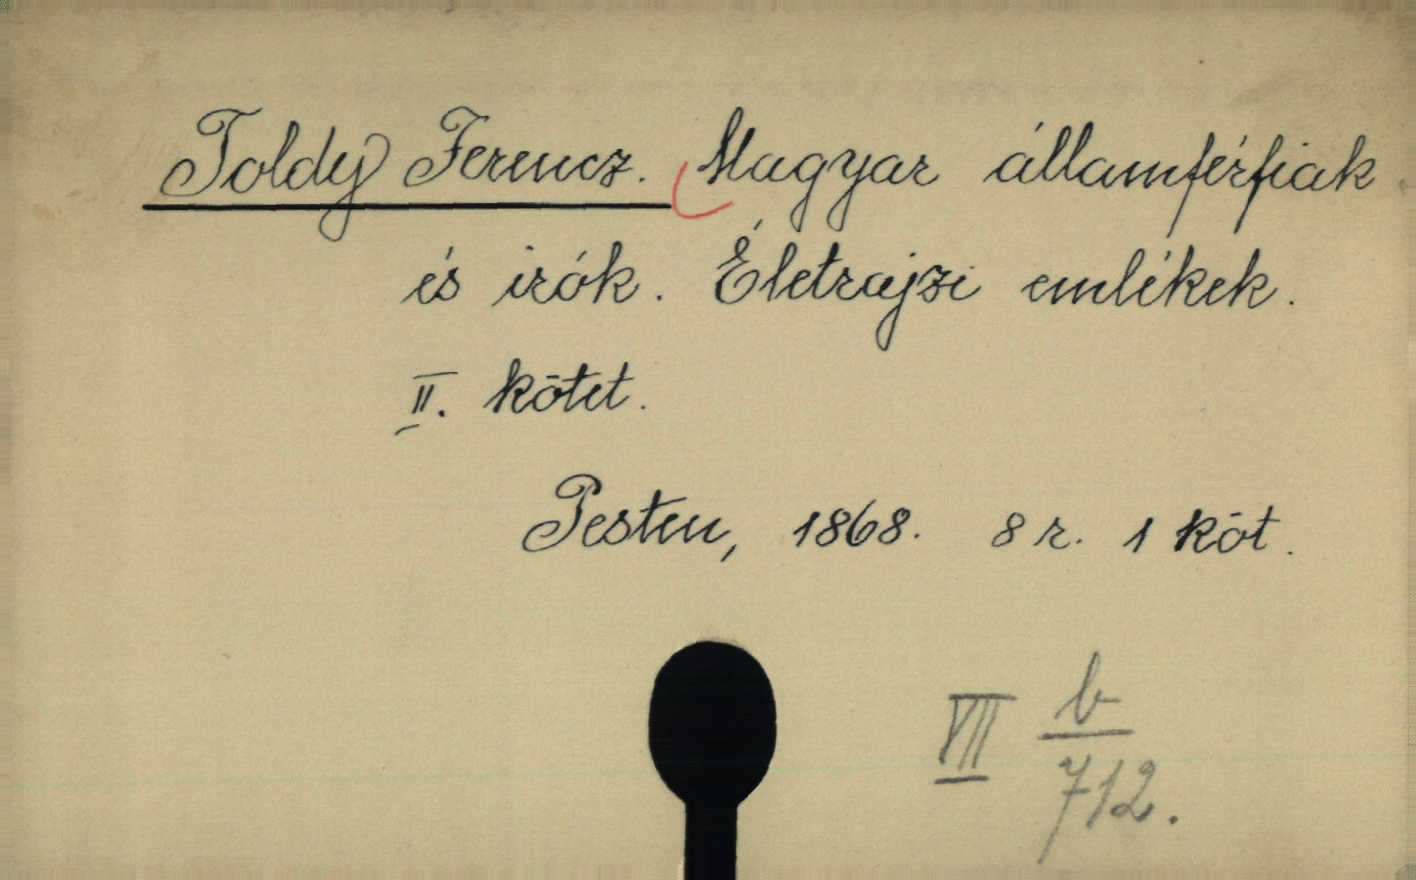 Toldy Ferencz. Magyar államférfiak
és irók. Életrajzi emlékek.
II. kötet.
Pesten, 1868. 8 r. 1 köt.
VII b/712.